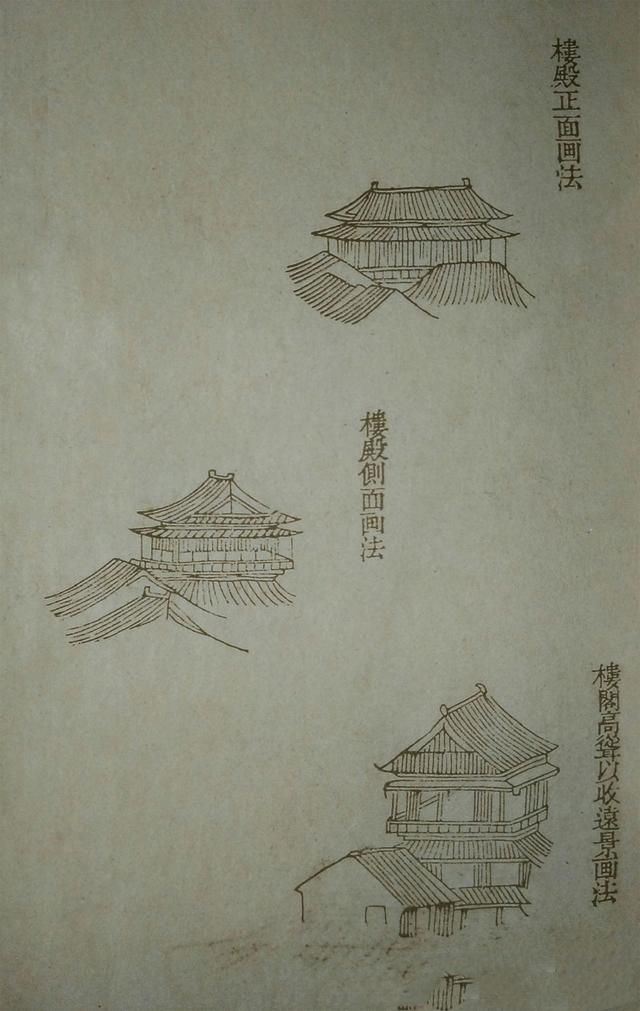 樓殿正面画法
樓殿側面画法
樓閣高聳以收遠景画法